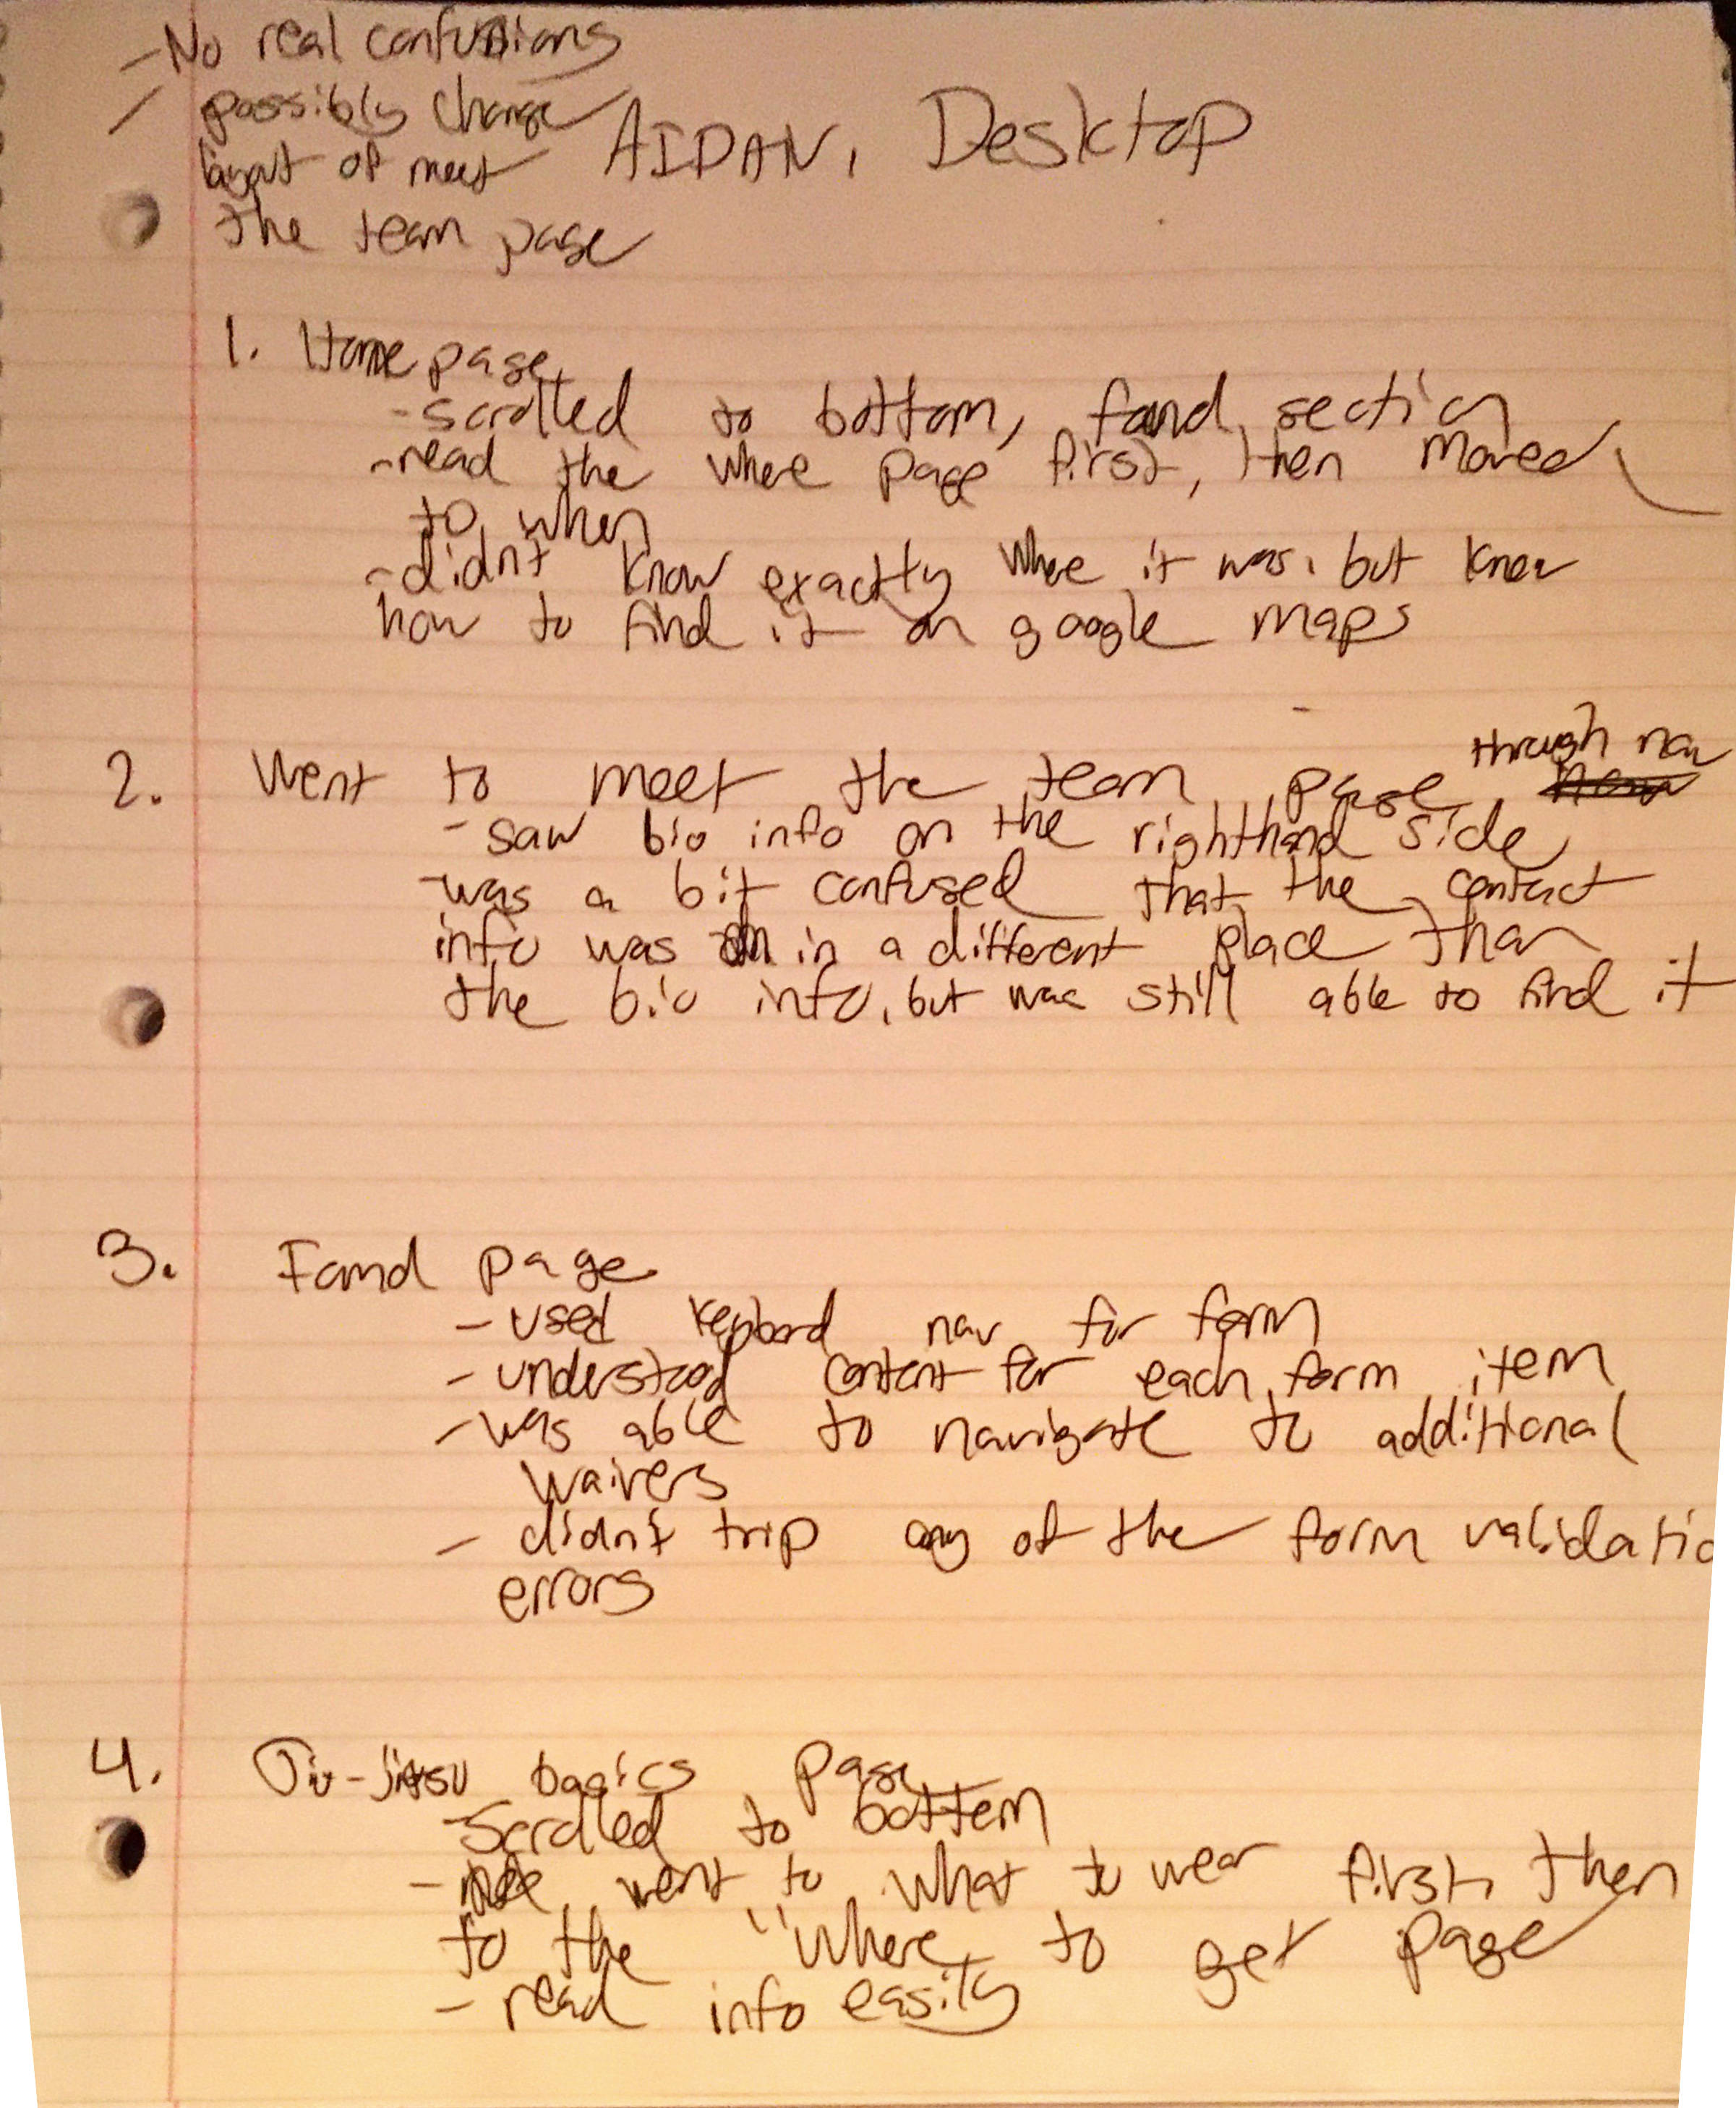 - No real confusions
- possibly change
layout of meet
the team page
AIDAN, Desktop
1. Home page
- scrolled to bottom, found section
- read the where page first, then moved
to when
- didn't know exactly where it was, but knew
how to find it on google maps
2. Went to meet the team page through nav
- saw bio info on the righthand side
- was a bit confused that the contact
info was in a different place than
the bio info, but was still able to find it
3. Found page
- used keyboard nav for form
- understood content for each form item
- was able to navigate to additional
waivers
- didn't trip any of the form validatio
errors
4. Jiu-jitsu basics page
- Scrolled to bottom
- went to what to wear first, then
to the "where to get page
- read info easily